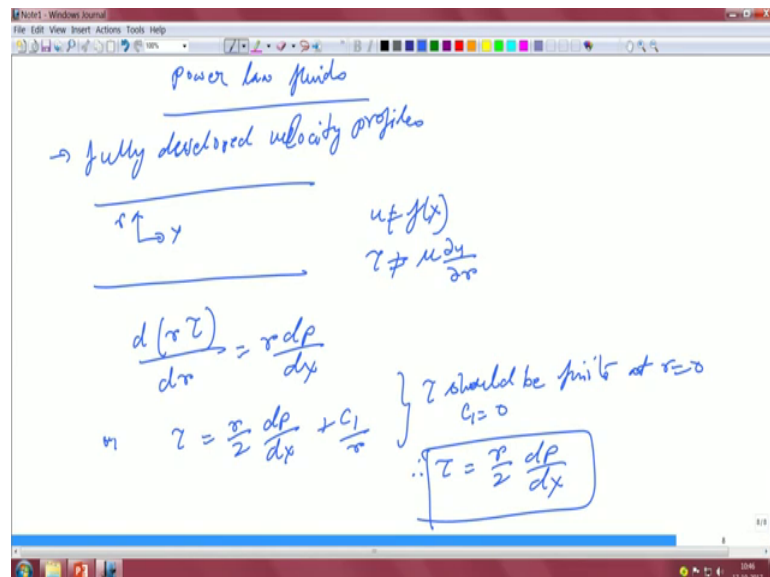 Note1 - Windows Journal
File Edit View Insert Actions Tools Help
100%
B I
power law fluids
→ fully developed velocity profiles
r x
u ≠ f(x)
τ ≠ μ ∂u/∂r
d(rτ)/dr = r dp/dx
or τ = r/2 dp/dx + C1/r } τ should be finite at r=0
C1 = 0
∴ τ = r/2 dp/dx
8/8
8
10:46